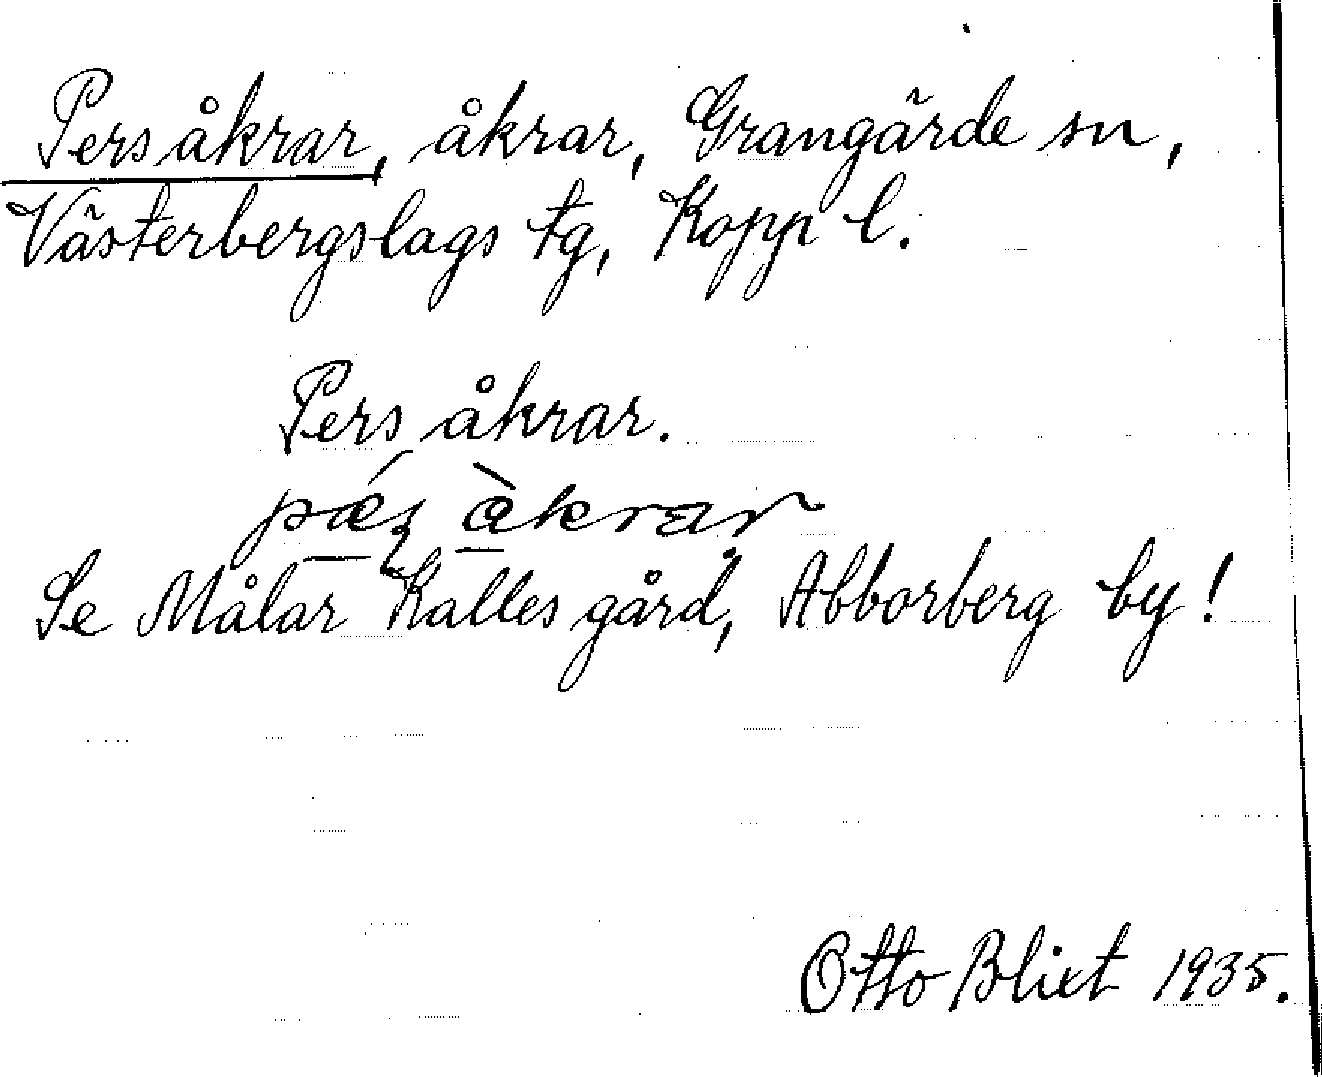 Pers åkrar, åkrar, Grangärde sn,
Västerbergslags tg, Kopp l.
Pers åkrar.
Se Målar Kalles gård, Abborberg by!
Otto Blixt 1935.